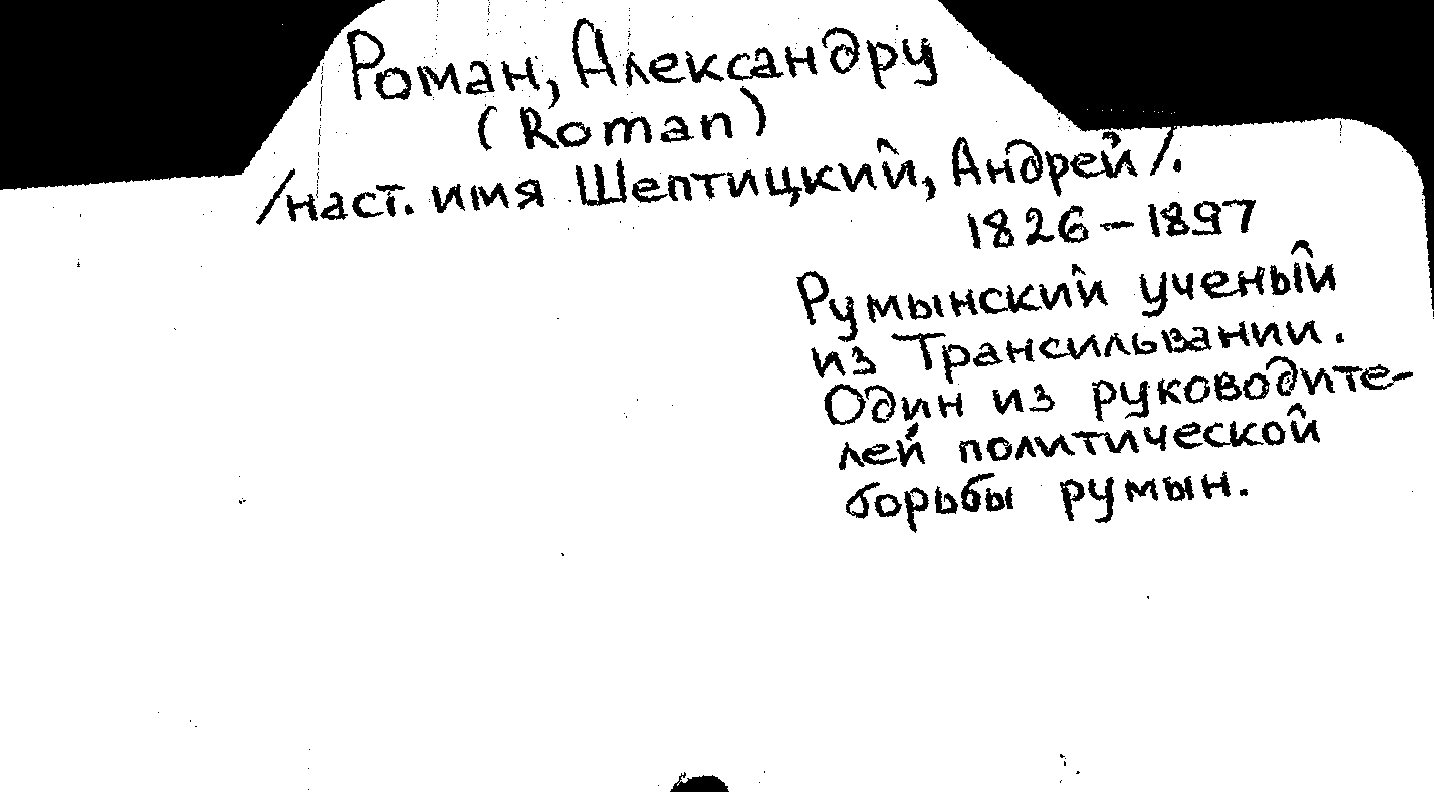 Роман, Александру
(Roman)
/наст. имя Шептицкий, Андрей/.
1826 – 1897
Румынский ученый
из Трансильвании.
Один из руководите-
лей политической
борьбы румын.